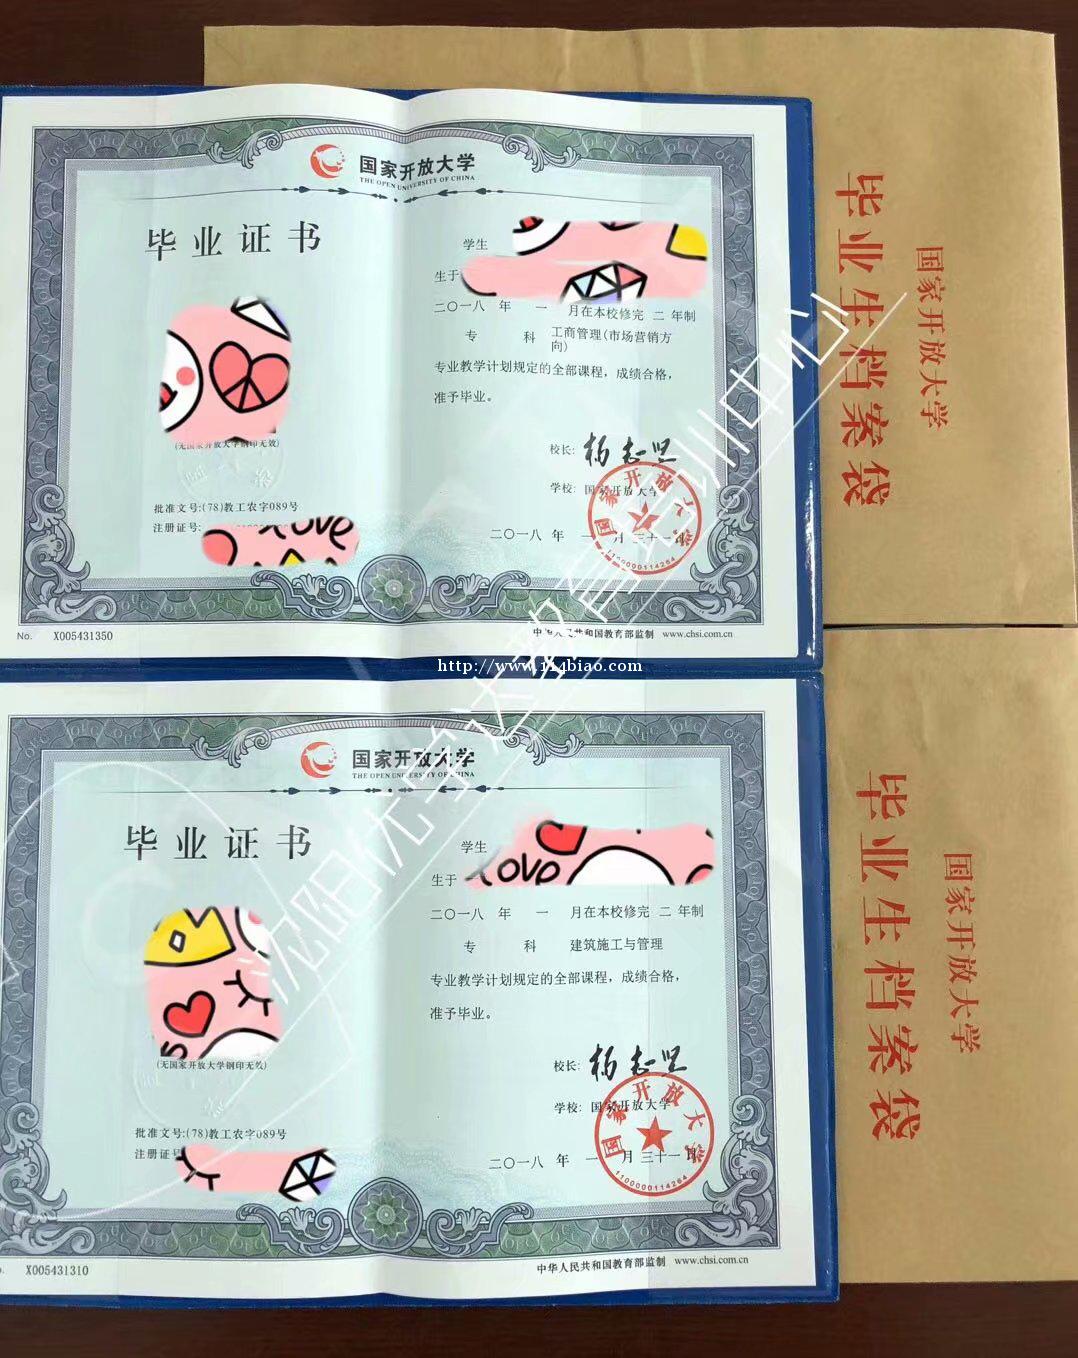 国家开放大学
THE OPEN UNIVERSITY OF CHINA
毕业证书
(无国家开放大学钢印无效)
批准文号:(78)教工农字089号
注册证号:
学生
生于
二〇一八 年 一 月在本校修完 二 年制
专 科 工商管理(市场营销方
向)
专业教学计划规定的全部课程，成绩合格，
准予毕业。
校长:
学校: 国家开放大学
二〇一八 年 一 月 三十一 日
国家开放大学
1100000114264
No. X005431350
中华人民共和国教育部监制 www.chsi.com.cn
国家开放大学
毕业生档案袋
http://www.114biao.com
国家开放大学
THE OPEN UNIVERSITY OF CHINA
毕业证书
Love
(无国家开放大学钢印无效)
批准文号:(78)教工农字089号
注册证号
学生
生于
二〇一八 年 一 月在本校修完 二 年制
专 科 建筑施工与管理
专业教学计划规定的全部课程，成绩合格，
准予毕业。
校长:
学校: 国家开放大学
二〇一八 年 一 月 三十一 日
国家开放大学
1100000114264
X005431310
中华人民共和国教育部监制 www.chsi.com.cn
国家开放大学
毕业生档案袋